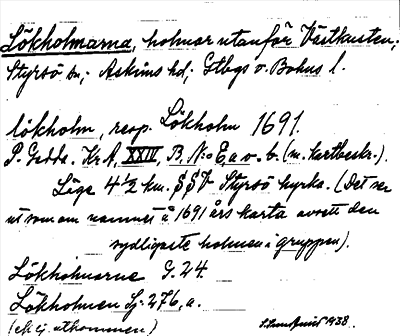 Lökholmarna, holmar utanför Västkusten;
Styrsö sn; Askims hd; Gtbgs o. Bohus l.
lökholm, resp. Lökholm 1691.
P. Gedda. Kr. A, XXIV, B, N:o E, a o. b. (m. kartbeskr.).
Läge 4 1/2 km. SSV Styrsö kyrka. (Det ser
ut som om namnet å 1691 års karta avsett den
sydligaste holmen i gruppen).
Lökholmarne G. 24.
Lökholmen Sj. 276, a.
(ej utkommen)
1938.